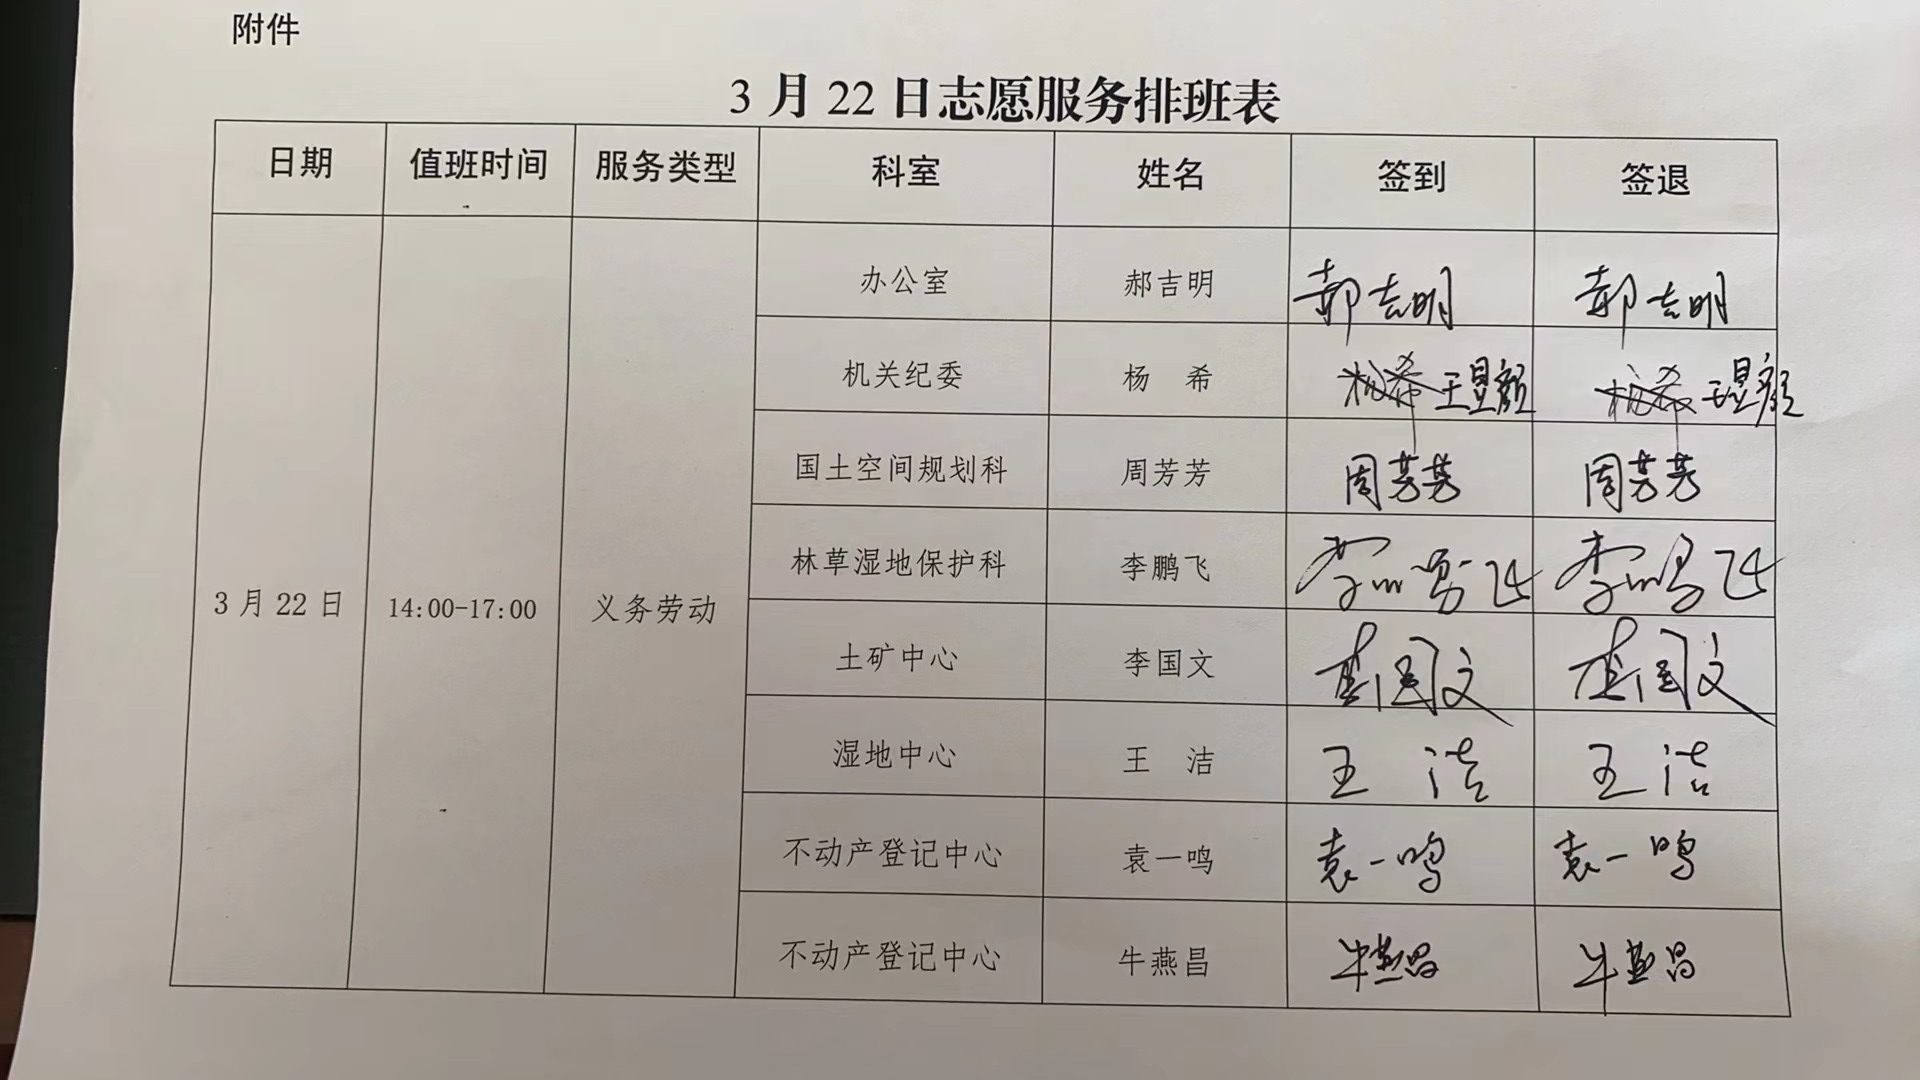 附件
3月22日志愿服务排班表
日期 值班时间 服务类型 科室 姓名 签到 签退
3月22日 14:00-17:00 义务劳动
办公室 郝吉明 郝吉明 郝吉明
机关纪委 杨 希 杨希 王昱颜 杨希 王昱颜
国土空间规划科 周芳芳 周芳芳 周芳芳
林草湿地保护科 李鹏飞 李鹏飞 李鹏飞
土矿中心 李国文 李国文 李国文
湿地中心 王 洁 王 洁 王 洁
不动产登记中心 袁一鸣 袁一鸣 袁一鸣
不动产登记中心 牛燕昌 牛燕昌 牛燕昌